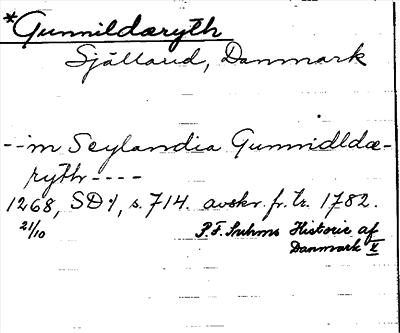 *Gunnildæryth
Sjælland, Danmark
--in Seylandia Gunnidldæ-
ryth----
1268, SD 1, s. 714. avskr. fr. tr. 1782.
21/10 P. F. Suhms Historie af
Danmark X